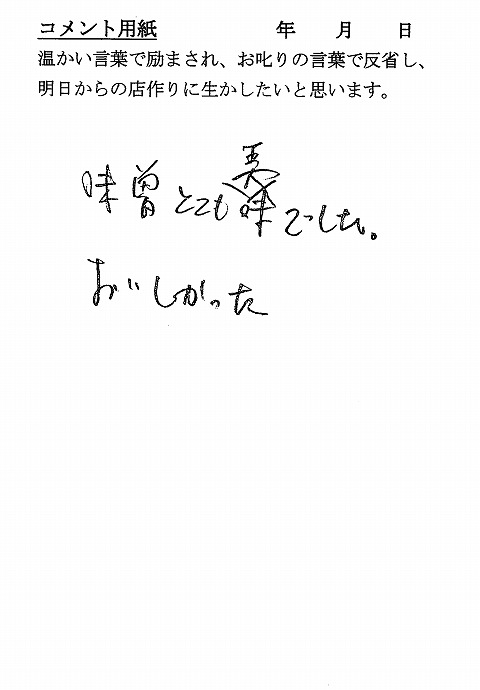 コメント用紙 年 月 日
温かい言葉で励まされ、お叱りの言葉で反省し、
明日からの店作りに生かしたいと思います。
味曽とても美味でした。
おいしかった